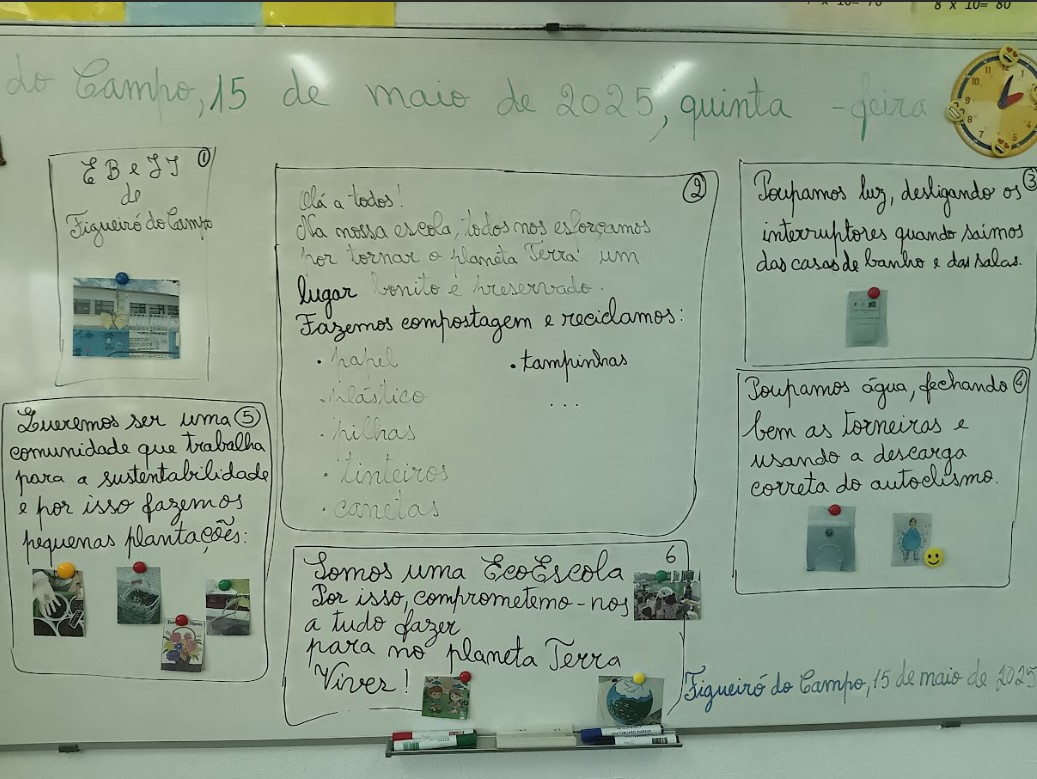 8 x 10= 80
do Campo, 15 de maio de 2025, quinta-feira
1
EB e JI
de
Figueiró do Campo
2
Olá a todos!
Na nossa escola, todos nos esforçamos
por tornar o planeta Terra um
lugar bonito e preservado.
Fazemos compostagem e reciclamos:
• papel
• plástico
• pilhas
• tinteiros
• canetas
• tampinhas
...
3
Poupamos luz, desligando os
interruptores quando saímos
das casas de banho e das salas.
4
Poupamos água, fechando
bem as torneiras e
usando a descarga
correta do autoclismo.
5
Queremos ser uma
comunidade que trabalha
para a sustentabilidade
e por isso fazemos
pequenas plantações:
6
Somos uma EcoEscola
Por isso, comprometemo-nos
a tudo fazer
para no planeta Terra
Viver!
Figueiró do Campo, 15 de maio de 2025